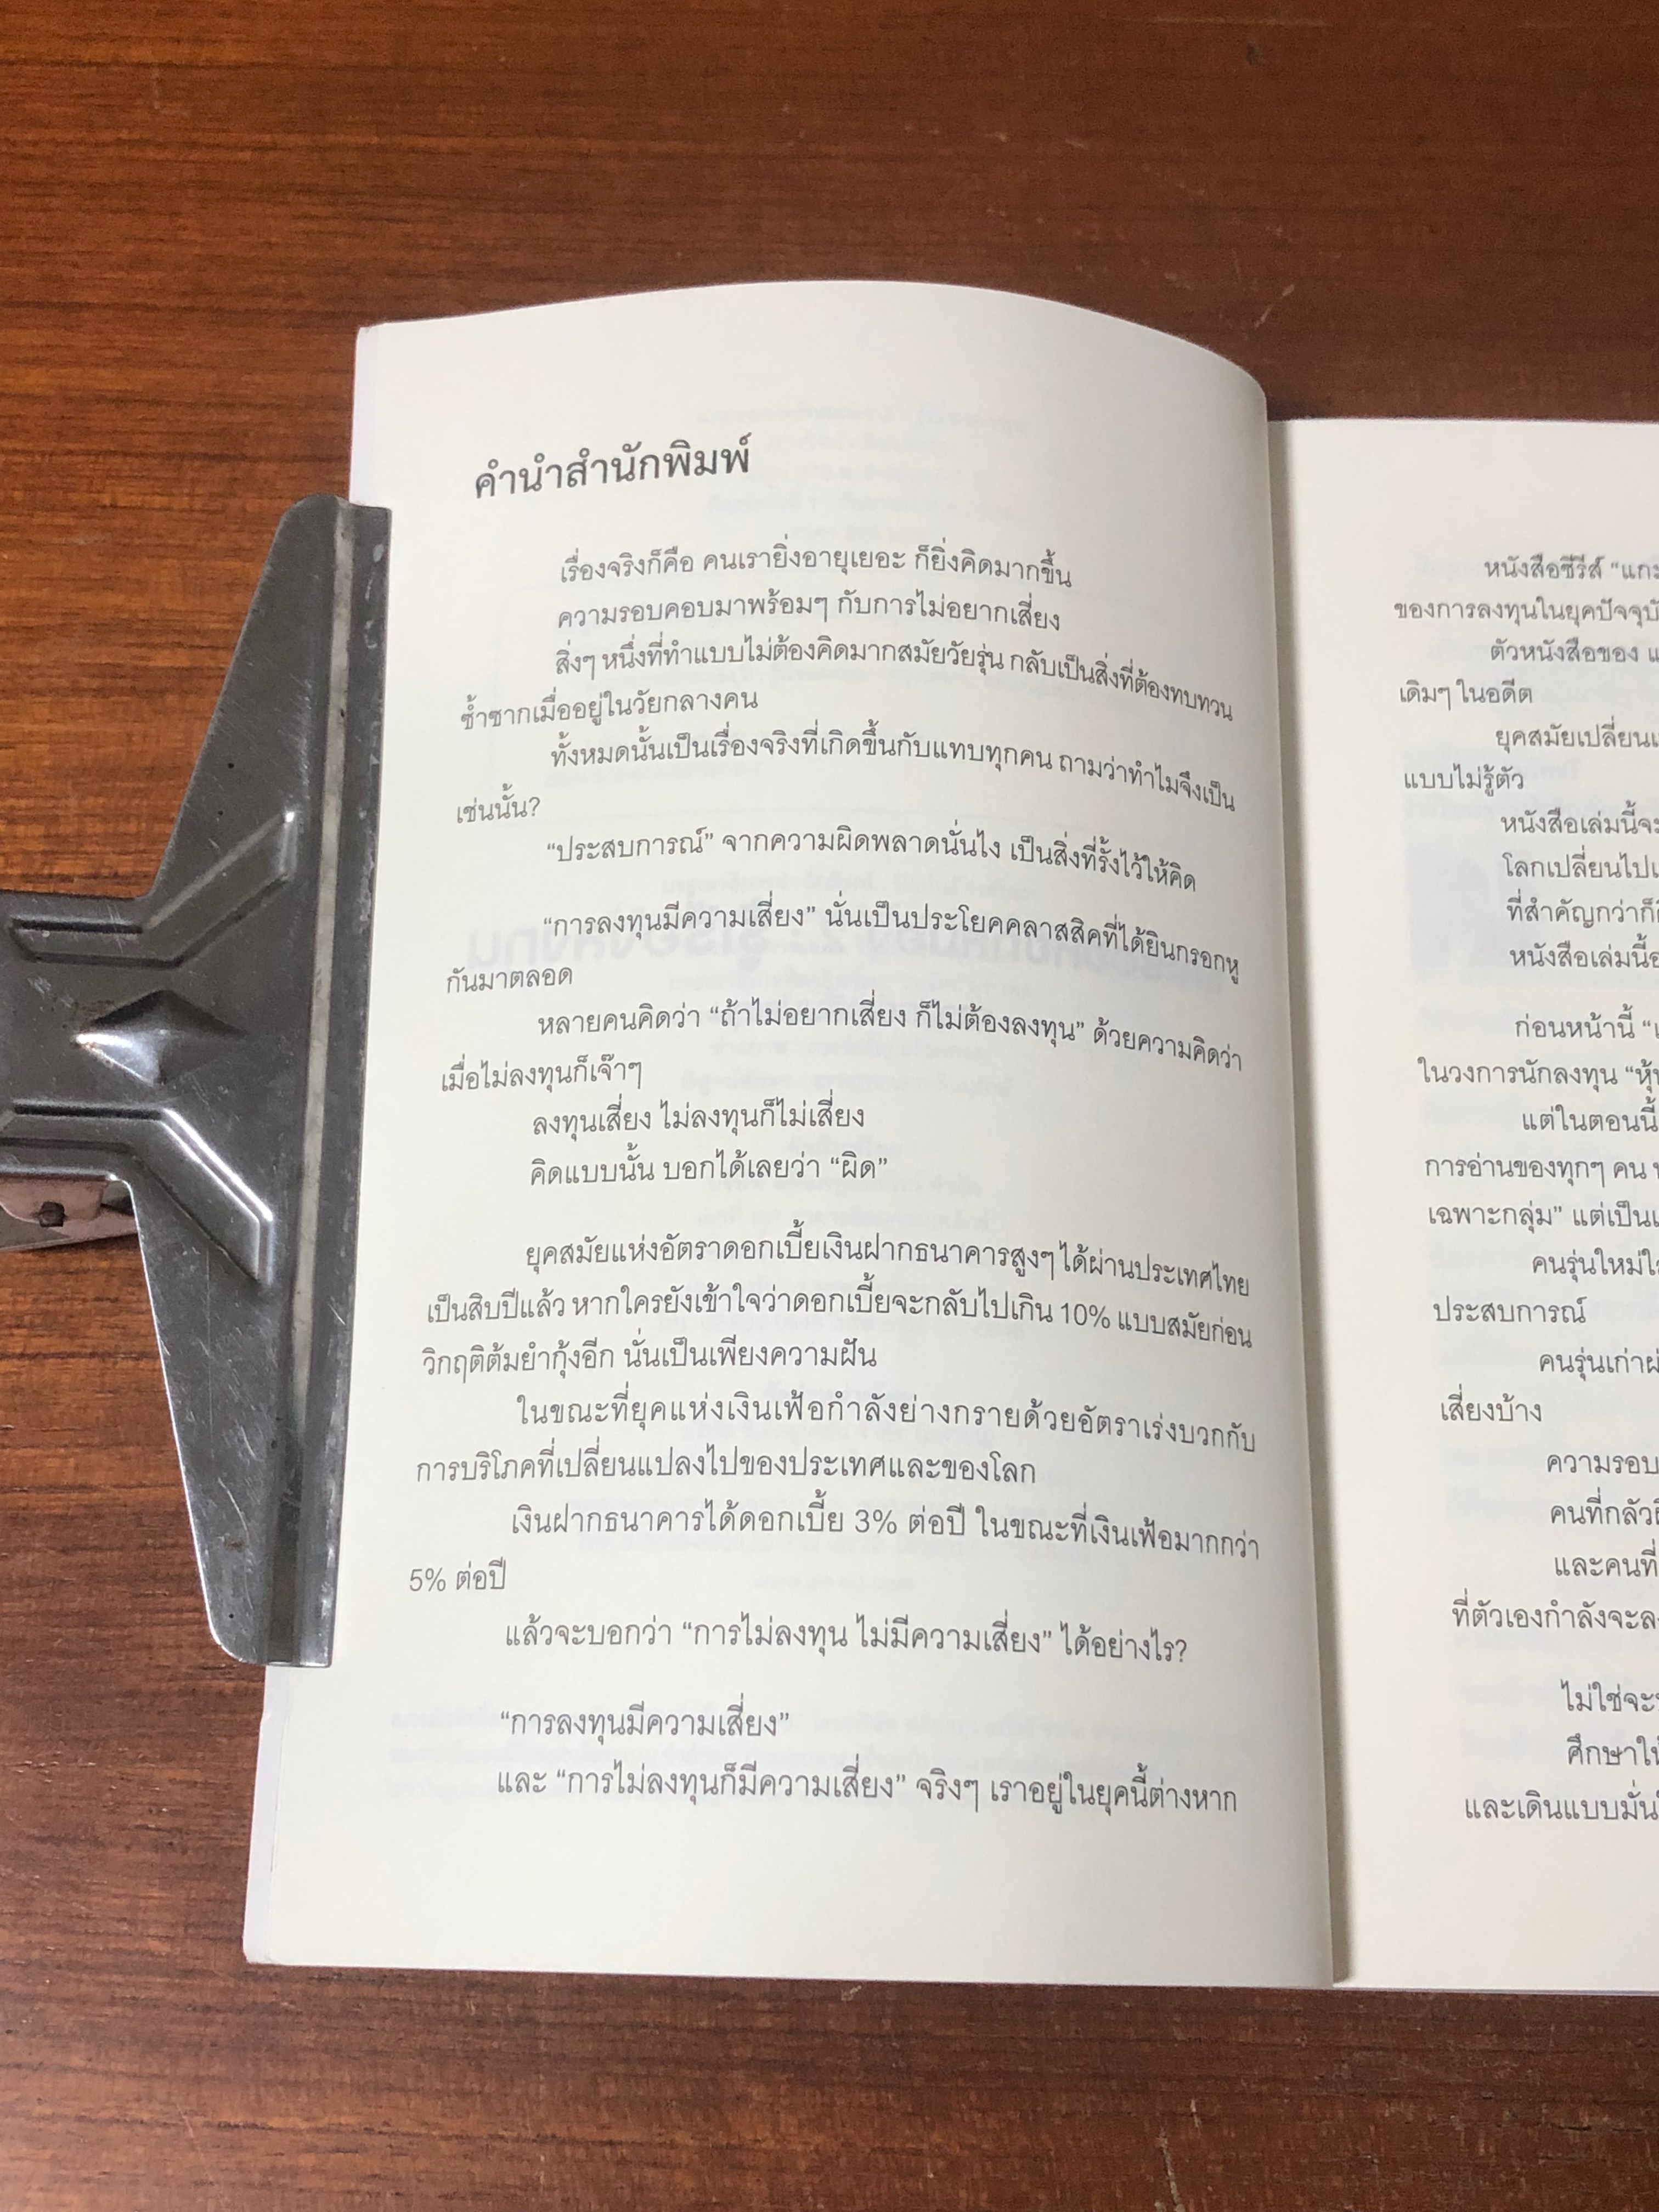 คำนำสำนักพิมพ์
เรื่องจริงก็คือ คนเรายิ่งอายุเยอะ ก็ยิ่งคิดมากขึ้น
ความรอบคอบมาพร้อมๆ กับการไม่อยากเสี่ยง
สิ่งๆ หนึ่งที่ทำแบบไม่ต้องคิดมากสมัยวัยรุ่น กลับเป็นสิ่งที่ต้องทบทวน
ซ้ำซากเมื่ออยู่ในวัยกลางคน
ทั้งหมดนั้นเป็นเรื่องจริงที่เกิดขึ้นกับแทบทุกคน ถามว่าทำไมจึงเป็น
เช่นนั้น?
“ประสบการณ์” จากความผิดพลาดนั่นไง เป็นสิ่งที่รั้งไว้ให้คิด
“การลงทุนมีความเสี่ยง” นั่นเป็นประโยคคลาสสิคที่ได้ยินกรอกหู
กันมาตลอด
หลายคนคิดว่า “ถ้าไม่อยากเสี่ยง ก็ไม่ต้องลงทุน” ด้วยความคิดว่า
เมื่อไม่ลงทุนก็เจ๊าๆ
ลงทุนเสี่ยง ไม่ลงทุนก็ไม่เสี่ยง
คิดแบบนั้น บอกได้เลยว่า “ผิด”
ยุคสมัยแห่งอัตราดอกเบี้ยเงินฝากธนาคารสูงๆ ได้ผ่านประเทศไทย
เป็นสิบปีแล้ว หากใครยังเข้าใจว่าดอกเบี้ยจะกลับไปเกิน 10% แบบสมัยก่อน
วิกฤติต้มยำกุ้งอีก นั่นเป็นเพียงความฝัน
ในขณะที่ยุคแห่งเงินเฟ้อกำลังย่างกรายด้วยอัตราเร่งบวกกับ
การบริโภคที่เปลี่ยนแปลงไปของประเทศและของโลก
เงินฝากธนาคารได้ดอกเบี้ย 3% ต่อปี ในขณะที่เงินเฟ้อมากกว่า
5% ต่อปี
แล้วจะบอกว่า “การไม่ลงทุน ไม่มีความเสี่ยง” ได้อย่างไร?
“การลงทุนมีความเสี่ยง”
และ “การไม่ลงทุนก็มีความเสี่ยง” จริงๆ เราอยู่ในยุคนี้ต่างหาก
หนังสือซีรีส์ “แกะ
ของการลงทุนในยุคปัจจุบั
ตัวหนังสือของ
เดิมๆ ในอดีต
ยุคสมัยเปลี่ยน
แบบไม่รู้ตัว
หนังสือเล่มนี้จะ
โลกเปลี่ยนไป
ที่สำคัญกว่าก็
หนังสือเล่มนี้
ก่อนหน้านี้
ในวงการนักลงทุน “หุ้
แต่ในตอนนี้
การอ่านของทุกๆ คน
เฉพาะกลุ่ม” แต่เป็น
คนรุ่นใหม่
ประสบการณ์
คนรุ่นเก่า
เสี่ยงบ้าง
ความรอบ
คนที่กลัว
และคนที่
ที่ตัวเองกำลังจะ
ไม่ใช่จะ
ศึกษาให้
และเดินแบบมั่น